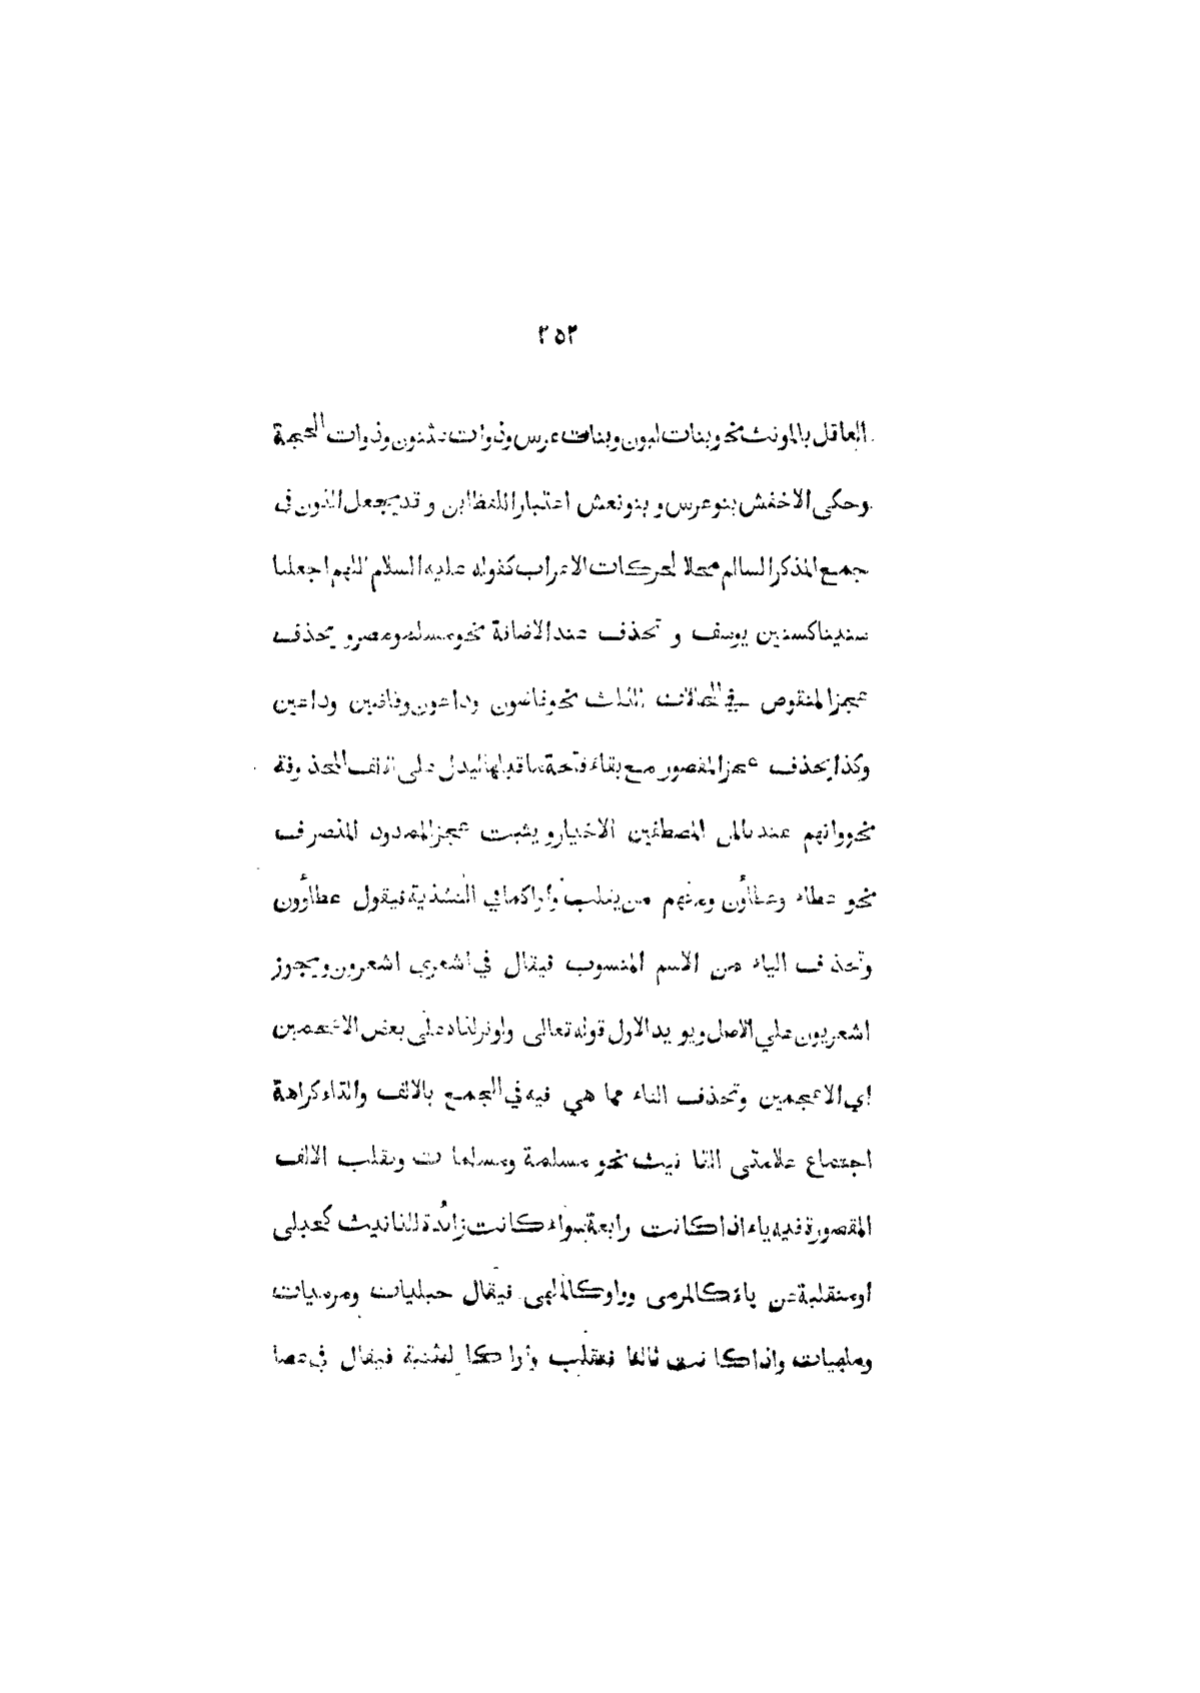 ٢٥٢
العاقل بالمونث نحو بنات لبون وبنات عرس وذوات تثنون وذوات الحجة
وحكى الاخفش بنو عرس و بنو نعش اعتبارا للفظ ابن و قد يجعل النون فى
جمع المذكر السالم محلا لحركات الاعراب كقوله عليه السلام اللهم اجعلنا
سنيناكسنين يوسف و تحذف عند الاضافة نحو مسلمو مصر و يحذف
عجز المنقوص في الحالات الثلث نحو قاضون وداعون وقاضين وداعين
وكذا يحذف عجز المقصور مع بقاء فتحة ما قبلها ليدل على الالف المحذوفة
نحو وانهم عندنا لمن المصطفين الاخيار و يثبت عجز الممدود المنصرف
نحو عطاء وعطاؤن ومنهم من يقلب واوا كما في التثنية فيقول عطاوون
وتحذف الياء من الاسم المنسوب فيقال في اشعري اشعرون ويجوز
اشعريون علي الاصل ويويد الاول قوله تعالى ولو نزلناه على بعض الاعجمين
اي الاعجمين وتحذف التاء مما هي فيه في الجمع بالالف والتاء كراهة
اجتماع علامتى التا نيث نحو مسلمة ومسلما ت وتقلب الالف
المقصورة فيه ياء اذا كانت رابعة سواء كانت زائدة للتانيث كحبلى
او منقلبة عن ياء كالمرمى وواو كالملهى فيقال حبليات ومرميات
وملهيات واذا كا نت ثالثا فتقلب واوا كما لتثنية فيقال فى عصا